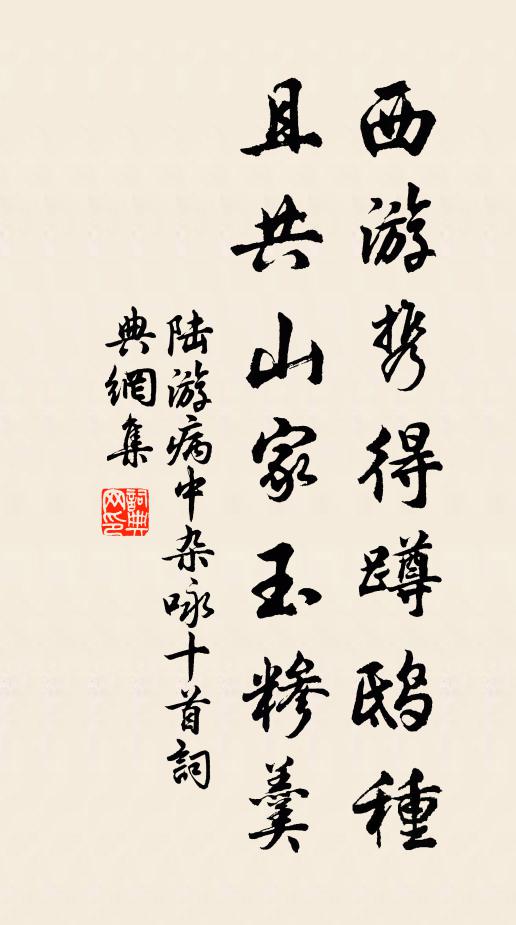 西游携得蹲鸱種
且共山家玉糁羹
陆游病中杂咏十首詞
典網集
詞典
网印